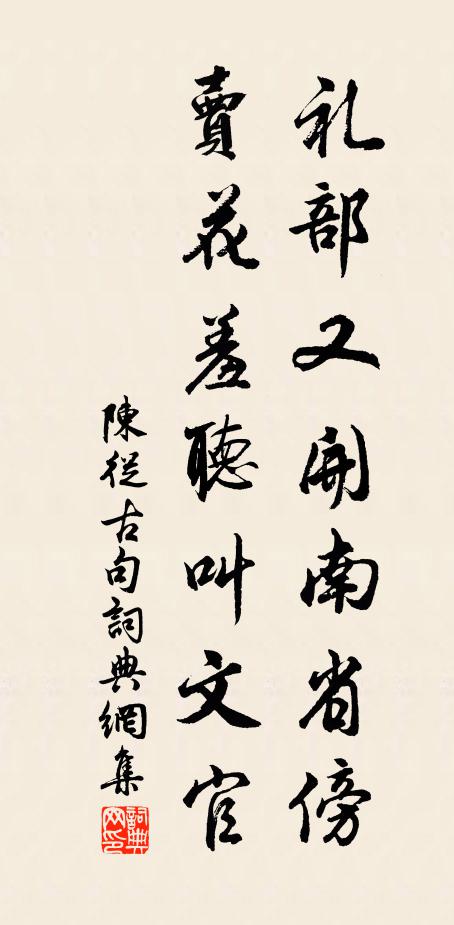 礼部又開南省傍
賣花羞聽叫文官
陳從古句詞典網集
詞典网印